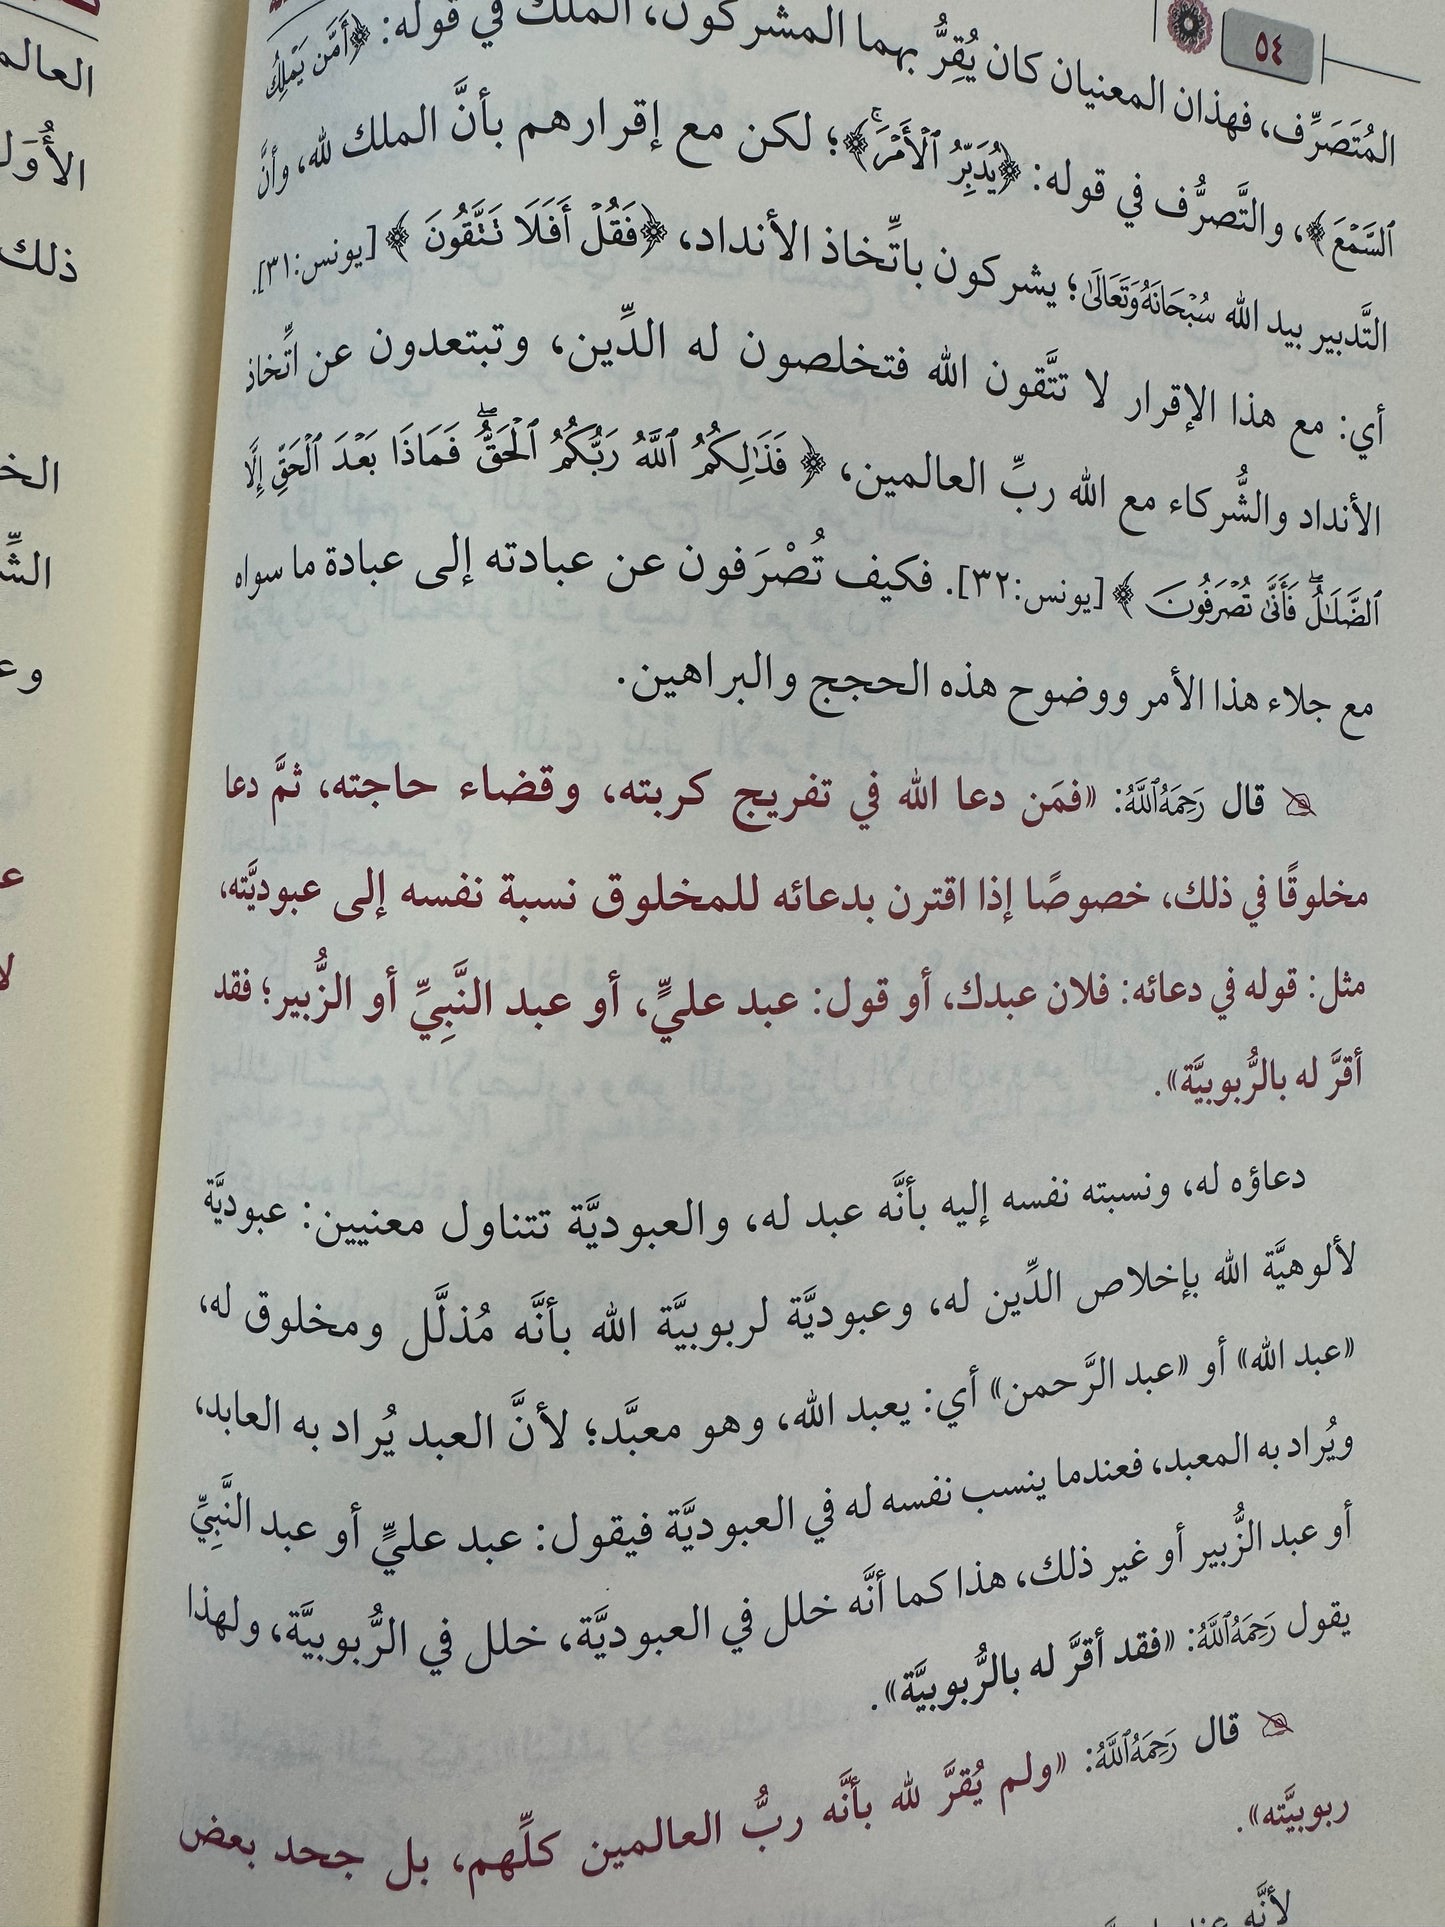 ٥٤
المُتَصَرِّف، فهذان المعنيان كان يُقِرُّ بهما المشركون، الملك في قوله: ﴿أَمَّن يَمْلِكُ
ٱلسَّمْعَ﴾، والتَّصرُّف في قوله: ﴿يُدَبِّرُ ٱلْأَمْرَ ۚ﴾؛ لكن مع إقرارهم بأنَّ الملك لله، وأنَّ
التَّدبير بيد الله سُبْحَانَهُ وَتَعَالَىٰ؛ يشركون باتِّخاذ الأنداد، ﴿فَقُلْ أَفَلَا تَتَّقُونَ﴾ [يونس:٣١].
أي: مع هذا الإقرار لا تتَّقون الله فتخلصون له الدِّين، وتبتعدون عن اتِّخاذ
الأنداد والشُّركاء مع الله ربِّ العالمين، ﴿فَذَٰلِكُمُ ٱللَّهُ رَبُّكُمُ ٱلْحَقُّ ۖ فَمَاذَا بَعْدَ ٱلْحَقِّ إِلَّا
ٱلضَّلَـٰلُ ۖ فَأَنَّىٰ تُصْرَفُونَ﴾ [يونس:٣٢]. فكيف تُصْرَفون عن عبادته إلى عبادة ما سواه
مع جلاء هذا الأمر ووضوح هذه الحجج والبراهين.
قال رَحِمَهُ ٱللَّهُ: «فمَن دعا الله في تفريج كربته، وقضاء حاجته، ثمَّ دعا
مخلوقًا في ذلك، خصوصًا إذا اقترن بدعائه للمخلوق نسبة نفسه إلى عبوديَّته،
مثل: قوله في دعائه: فلان عبدك، أو قول: عبد عليٍّ، أو عبد النَّبِيِّ أو الزُّبير؛ فقد
أقرَّ له بالرُّبوبيَّة».
دعاؤه له، ونسبته نفسه إليه بأنَّه عبد له، والعبوديَّة تتناول معنيين: عبوديَّة
لألوهيَّة الله بإخلاص الدِّين له، وعبوديَّة لربوبيَّة الله بأنَّه مُذلَّل ومخلوق له،
«عبد الله» أو «عبد الرَّحمن» أي: يعبد الله، وهو معبَّد؛ لأنَّ العبد يُراد به العابد،
ويُراد به المعبد، فعندما ينسب نفسه له في العبوديَّة فيقول: عبد عليٍّ أو عبد النَّبِيِّ
أو عبد الزُّبير أو غير ذلك، هذا كما أنَّه خلل في العبوديَّة، خلل في الرُّبوبيَّة، ولهذا
يقول رَحِمَهُ ٱللَّهُ: «فقد أقرَّ له بالرُّبوبيَّة».
قال رَحِمَهُ ٱللَّهُ: «ولم يُقرَّ لله بأنَّه ربُّ العالمين كلِّهم، بل جحد بعض
ربوبيَّته».
لأنَّه
العالم
ذلك